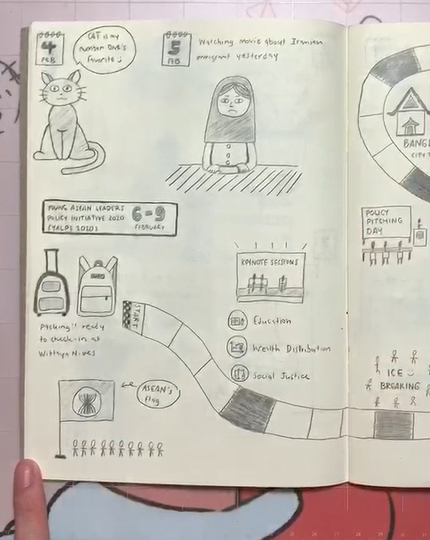 4
FEB
CAT is my
number one's
favorite
5
FEB
Watching movie about Iranian
immigrant yesterday
YOUNG ASEAN LEADERS
POLICY INITIATIVE 2020
(YALPI 2020)
6-9
FEBRUARY
Packing! ready
to check-in at
START
KEYNOTE SESSIONS
Education
Wealth Distribution
Social Justice
ASEAN's
flag
BANGL
CITY
POLICY
PITCHING
DAY
ICE
BREAKING